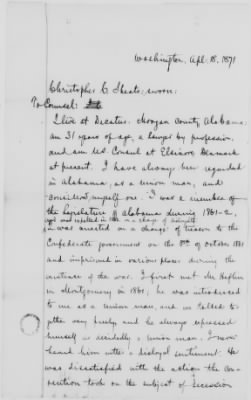 Washington, Apl. 18, 1871
Christopher C. Sheats: sworn:
To Counsel:
I live at Decatur, Morgan County Alabama,
am 31 years of age, a lawyer by profession,
and am U.S. Consul at Elsinore Denmark
at present. I have always been regarded
in Alabama, as a union man, and
consider myself one. I was a member of
the Legislature of Alabama during 1861-2,
was arrested on a charge of treason to the
Confederate government on the 8th of October 1861
and imprisoned in various places during the
existence of the war. I first met Mr Heflin
in Montgomery in 1861; he was introduced
to me as a union man, and we talked to-
gether very freely and he always expressed
himself as decidedly a union man. I never
heard him utter a disloyal sentiment. He
was dissatisfied with the action the Con-
vention took on the subject of secession